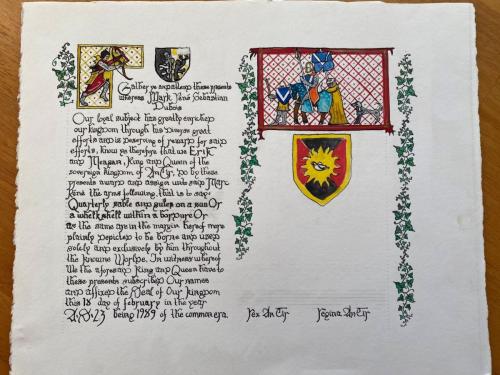 Gather ye and attend these presents
whereas Mark René Sebastian
Dubois
Our loyal subject has greatly enriched
our kingdom through his diverse great
efforts and is deserving of reward for said
efforts, know ye therefore that we Erik
and Meagan, King and Queen of the
sovereign kingdom of An Tir, do by these
presents award and assign unto said Marc
René the arms following, that is to say:
Quarterly sable and gules on a sun Or
a whelk shell within a bordure Or
as the same are in the margin hereof more
plainly depicted to be borne and used
solely and exclusively by him throughout
the Knowne Worlde. In witness whereof
We the aforesaid King and Queen have to
these presents subscribed Our names
and affixed the Seal of Our kingdom
this 18 day of february in the year
A.S. 23 being 1989 of the common era.
Rex An Tir Regina An Tir